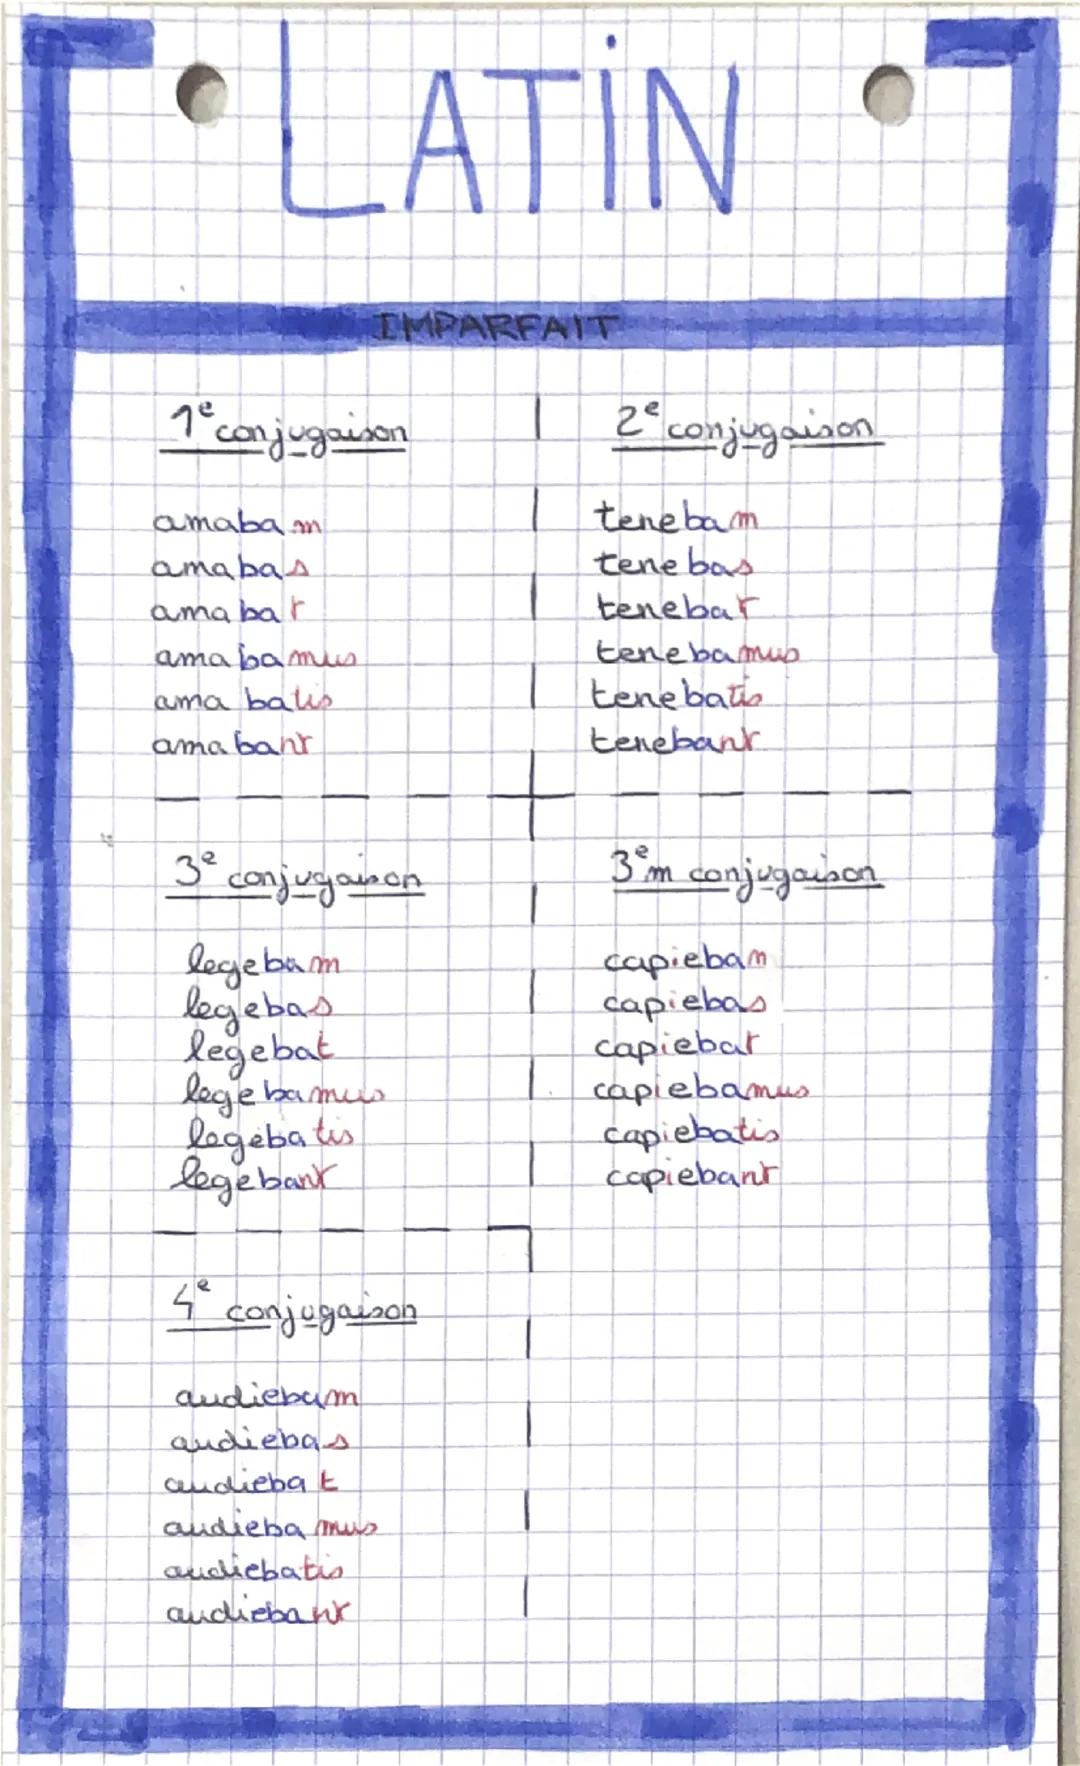 LATIN
IMPARFAIT
1e conjugaison
amabam
amabas
amabat
amabamus
amabatis
amabant
2e conjugaison
tenebam
tenebas
tenebat
tenebamus
tenebatis
tenebant
3e conjugaison
legebam
legebas
legebat
legebamus
legebatis
legebant
3em conjugaison
capiebam
capiebas
capiebat
capiebamus
capiebatis
capiebant
4e conjugaison
audiebam
audiebas
audiebat
audiebamus
audiebatis
audiebant